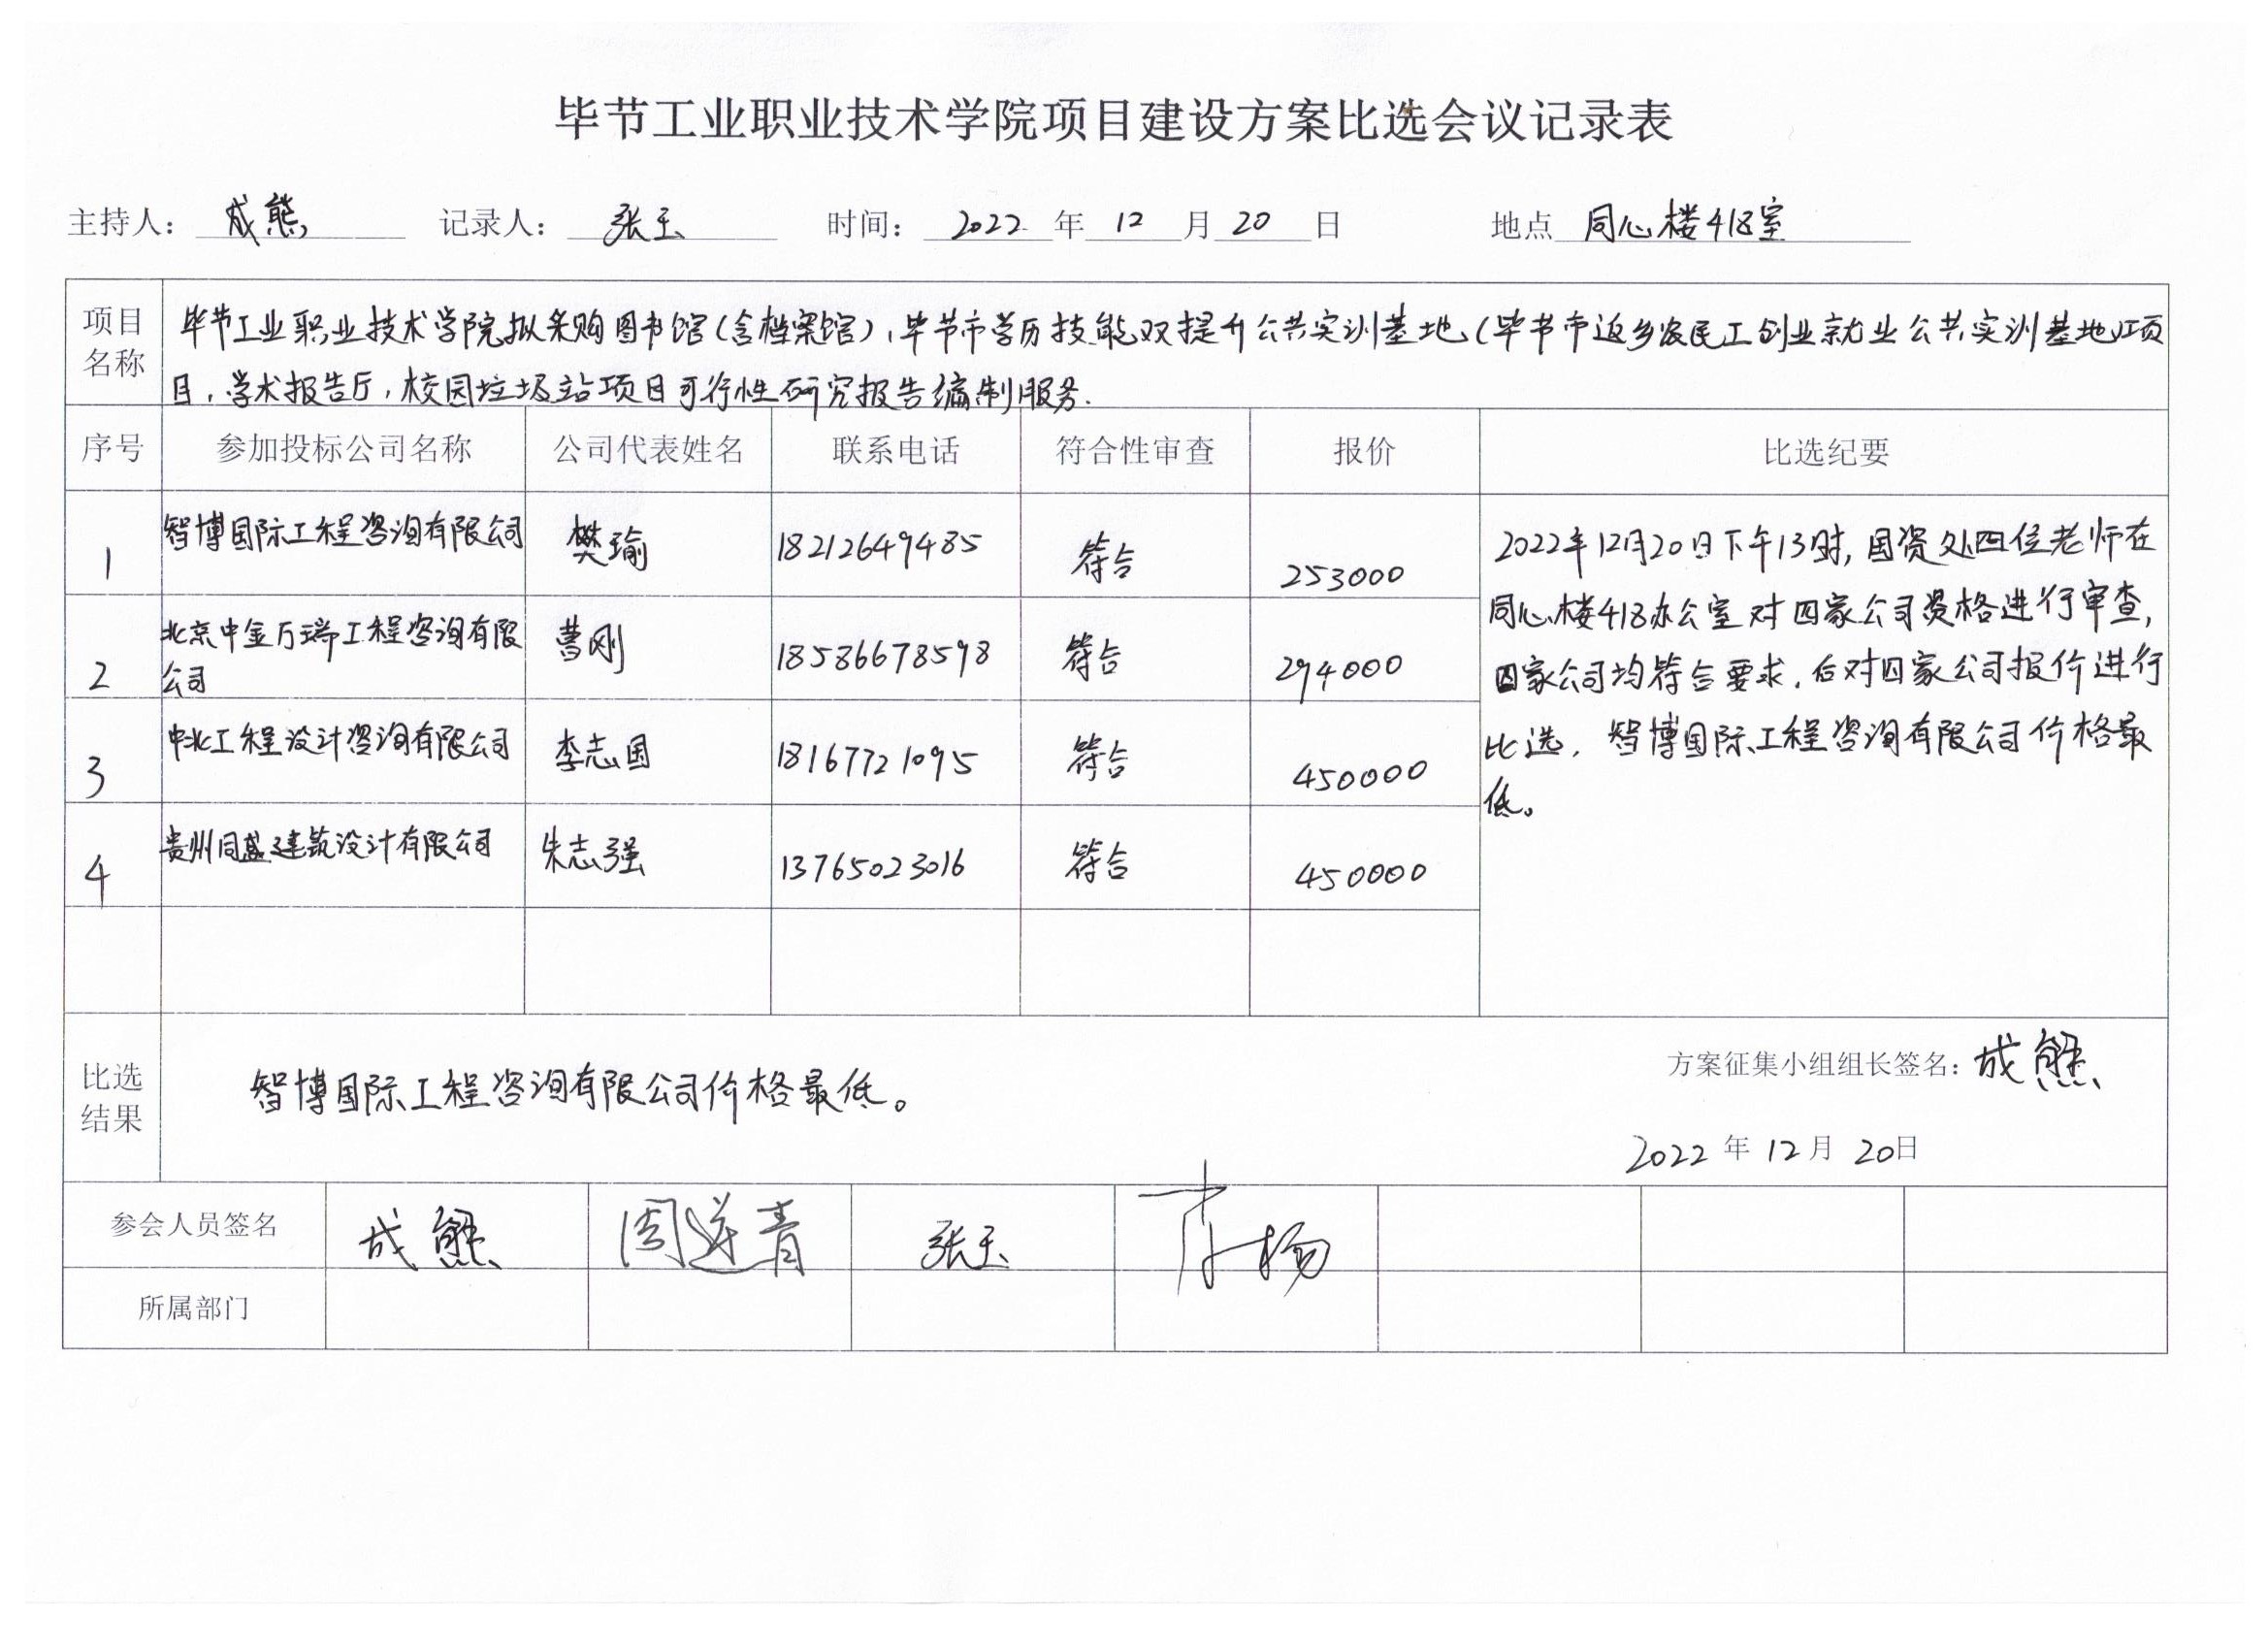 毕节工业职业技术学院项目建设方案比选会议记录表
主持人： 成熊 记录人： 张玉 时间： 2022 年 12 月 20 日 地点 同心楼418室
项目名称 毕节工业职业技术学院拟采购图书馆(含档案馆)，毕节市学历技能双提升公共实训基地(毕节市返乡农民工创业就业公共实训基地)项
目，学术报告厅，校园垃圾站项目可行性研究报告编制服务.
序号 参加投标公司名称 公司代表姓名 联系电话 符合性审查 报价 比选纪要
1 智博国际工程咨询有限公司 樊瑜 18212649485 符合 253000
2 北京中金万瑞工程咨询有限公司 曹刚 18586678598 符合 294000
3 中北工程设计咨询有限公司 李志国 18167721095 符合 450000
4 贵州同盛建筑设计有限公司 朱志强 13765023016 符合 450000
2022年12月20日下午13时，国资处四位老师在
同心楼418办公室对四家公司资格进行审查，
四家公司均符合要求，后对四家公司报价进行
比选，智博国际工程咨询有限公司价格最
低。
比选结果 智博国际工程咨询有限公司价格最低。
方案征集小组组长签名： 成熊
2022 年 12 月 20日
参会人员签名 成熊 周莲青 张玉 杨
所属部门